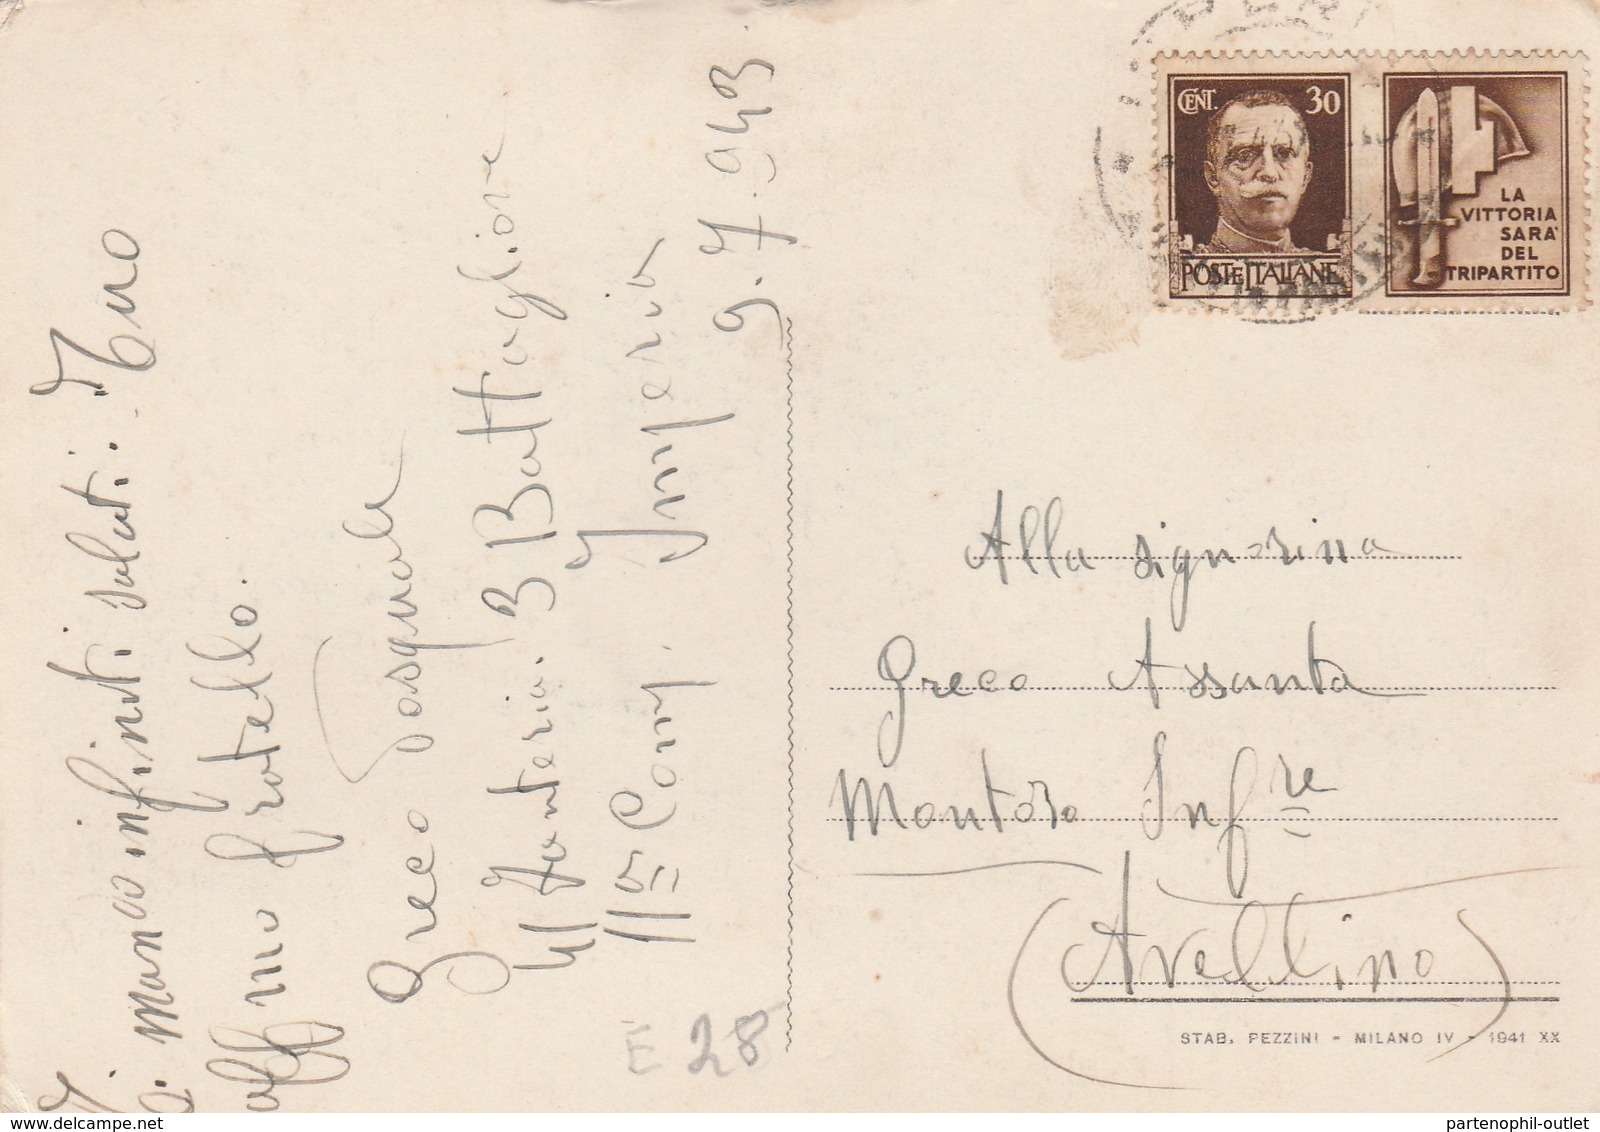 Ti mando infiniti saluti. Tuo
aff mo fratello.
Greco Pasquale
41 Fanteria. 3 Battaglione
11ª Comp. Imperia
9.7.943
CENT. 30
POSTE ITALIANE
LA
VITTORIA
SARA'
DEL
TRIPARTITO
Alla signorina
Greco Assunta
Montoro Inf re
(Avellino)
STAB. PEZZINI - MILANO IV - 1941 XX
E 28
www.delcampe.net
partenophil-outlet